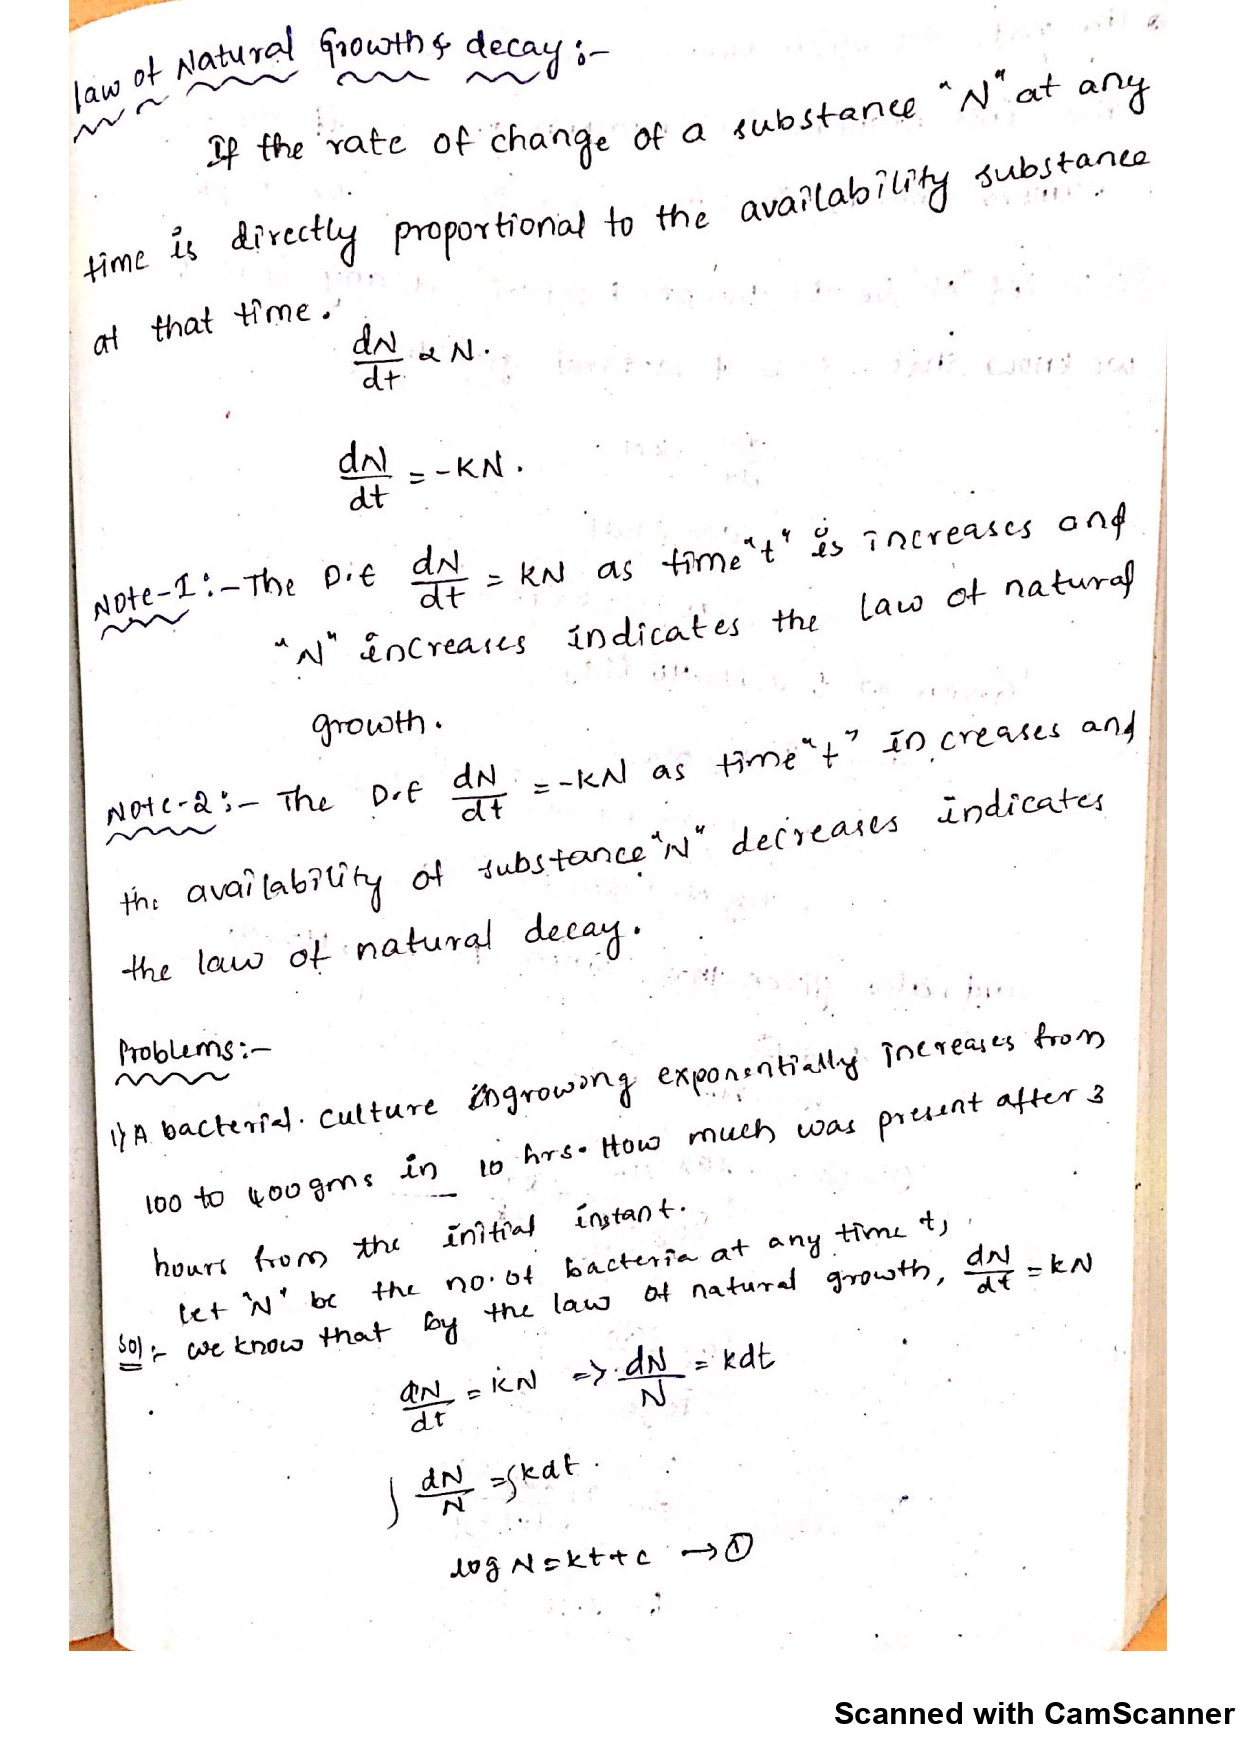 law of Natural Growth & decay :-
If the rate of change of a substance "N" at any
time is directly proportional to the availability substance
at that time.
dN/dt α N.
dN/dt = -KN.
Note-1 :- The D.E dN/dt = KN as time "t" is increases and
"N" increases indicates the law of natural
growth.
Note-2 :- The D.E dN/dt = -KN as time "t" increases and
the availability of substance "N" decreases indicates
the law of natural decay.
Problems :-
1) A bacterial culture ingrowing exponentially increases from
100 to 400 gms in 10 hrs. How much was present after 3
hours from the initial instant.
let 'N' be the no. of bacteria at any time t,
Sol :- we know that by the law of natural growth, dN/dt = kN
dN/dt = kN => dN/N = kdt
∫ dN/N = ∫kdt.
log N = kt + c → ①
Scanned with CamScanner